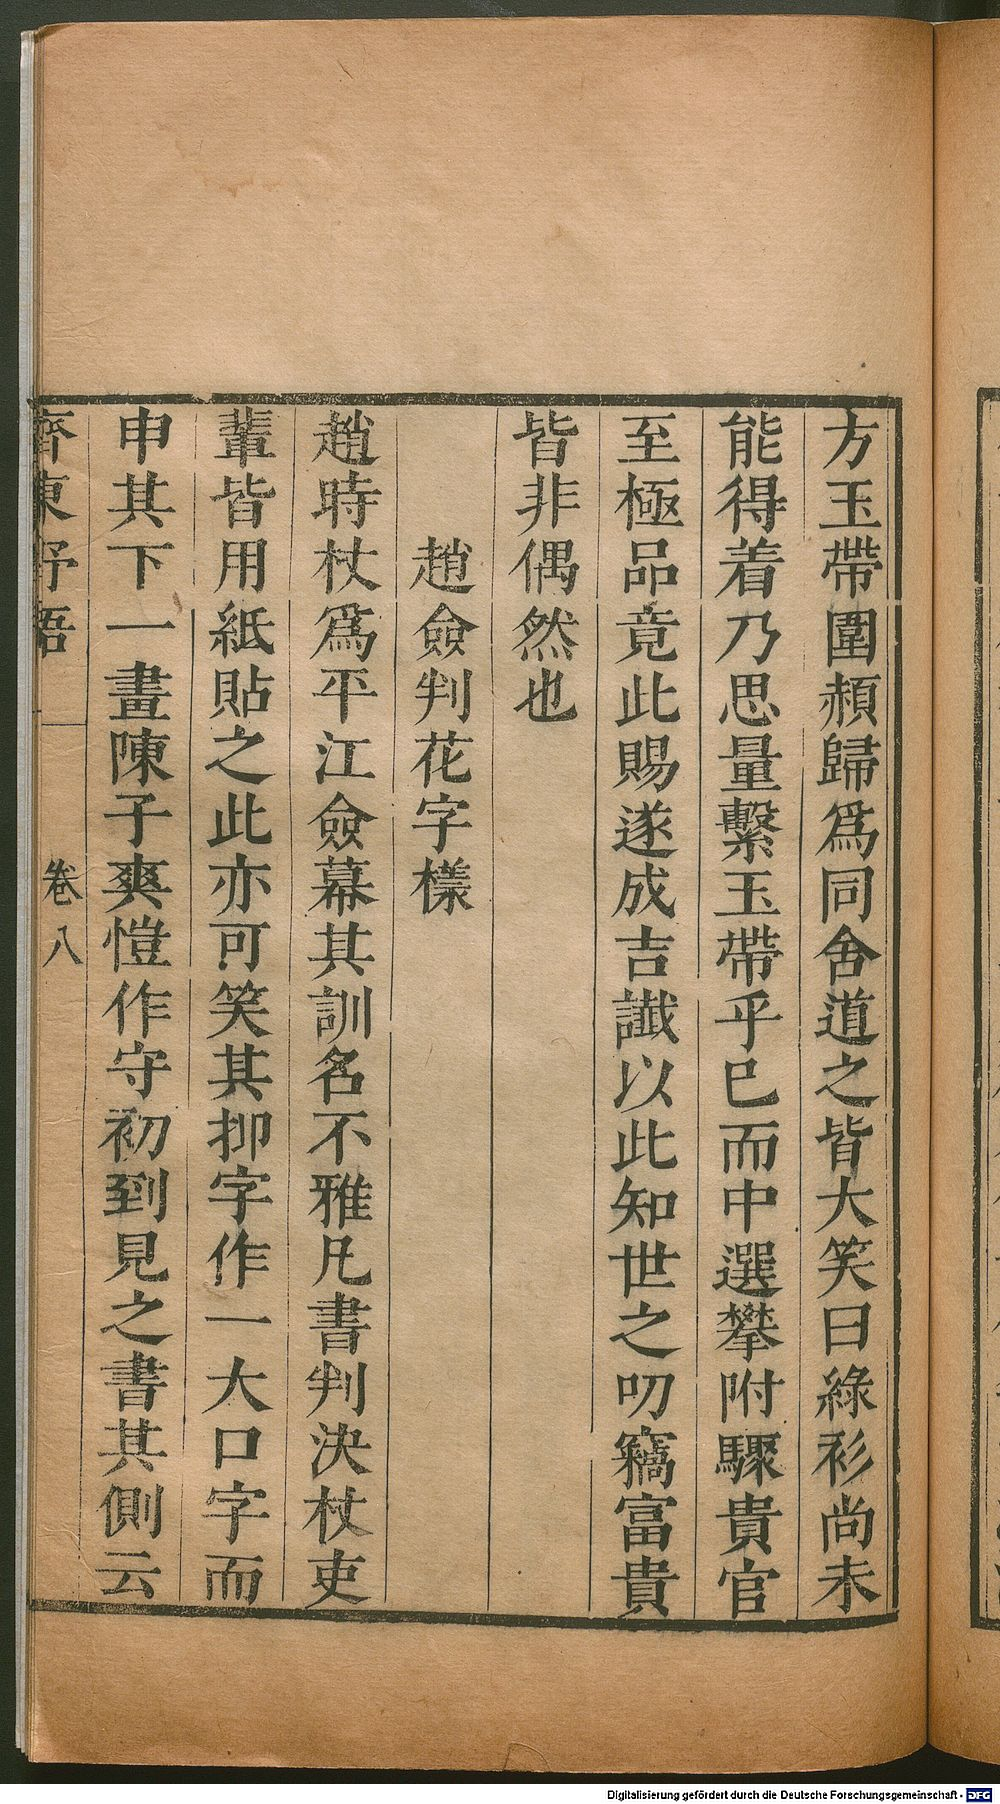 方玉帶圍頳歸爲同舍道之皆大笑曰綠衫尚未
能得着乃思量繫玉帶乎巳而中選攀附驟貴官
至極品竟此賜遂成吉讖以此知世之叨竊富貴
皆非偶然也
趙僉判花字樣
趙時杖爲平江僉幕其訓名不雅凡書判決杖吏
輩皆用紙貼之此亦可笑其押字作一大口字而
申其下一畫陳子爽愷作守初到見之書其側云
齊東野語
卷八
Digitalisierung gefördert durch die Deutsche Forschungsgemeinschaft - DFG